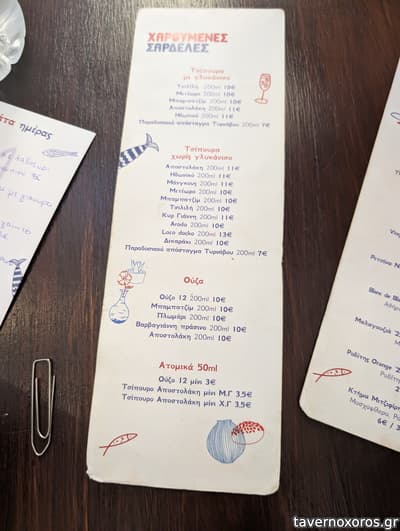 ΧΑΡΟΥΜΕΝΕΣ
ΣΑΡΔΕΛΕΣ
Τσίπουρα
με γλυκάνισο
Τιλιλή 200ml 10€
Μετέωρο 200ml 10€
Μπαμπατζίμ 200ml 10€
Αποστολάκη 200ml 11€
Ηδωνικό 200ml 11€
Παραδοσιακό απόσταγμα Τυρνάβου 200ml 7€
Τσίπουρα
χωρίς γλυκάνισο
Αποστολάκη 200ml 11€
Ηδωνικό 200ml 11€
Μάγκουνη 200ml 11€
Μετέωρο 200ml 10€
Μπαμπατζίμ 200ml 10€
Τιλιλή 200ml 10€
Κυρ Γιάννη 200ml 11€
Arodo 200ml 10€
Loco docko 200ml 13€
Δεκαράκι 200ml 10€
Παραδοσιακό απόσταγμα Τυρνάβου 200ml 7€
Ούζα
Ούζο 12 200ml 10€
Μπαμπατζίμ 200ml 10€
Πλωμάρι 200ml 10€
Βαρβαγιάννη πράσινο 200ml 10€
Αποστολάκη 200ml 10€
Ατομικά 50ml
Ούζο 12 μίνι 3€
Τσίπουρο Αποστολάκη μίνι Μ.Γ 3,5€
Τσίπουρο Αποστολάκη μίνι Χ.Γ 3,5€
ημέρας
Blanc de
Μαλαγουζιά
Ροδίτης Orange
Ροδίτης
Κτήμα
6€ /
tavernoxoros.gr